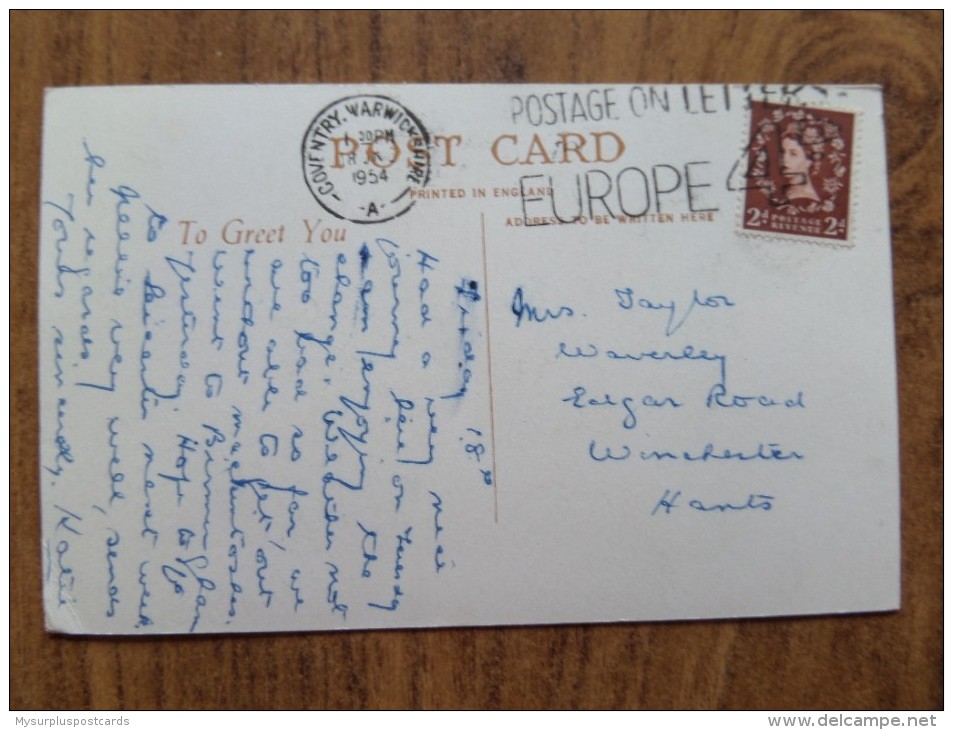 POSTAGE ON LETTERS
EUROPE 4D
COVENTRY. WARWICKSHIRE
1 30PM
8
1954
-A-
POST CARD
PRINTED IN ENGLAND
ADDRESS TO BE WRITTEN HERE
2d POSTAGE REVENUE 2d
To Greet You
Friday
Had a very nice
journey here on Tuesday
am enjoying the
change. Weather not
too bad so far, we
are able to get out
without mackintoshes.
Went to Birmingham
yesterday. Hope to go
to Leicester next week.
Nellie very well, sends
her regards
Yours sincerely. Katie
Mrs. Taylor
Waverley
Edgar Road
Winchester
Hants
Mysurpluspostcards
www.delcampe.net